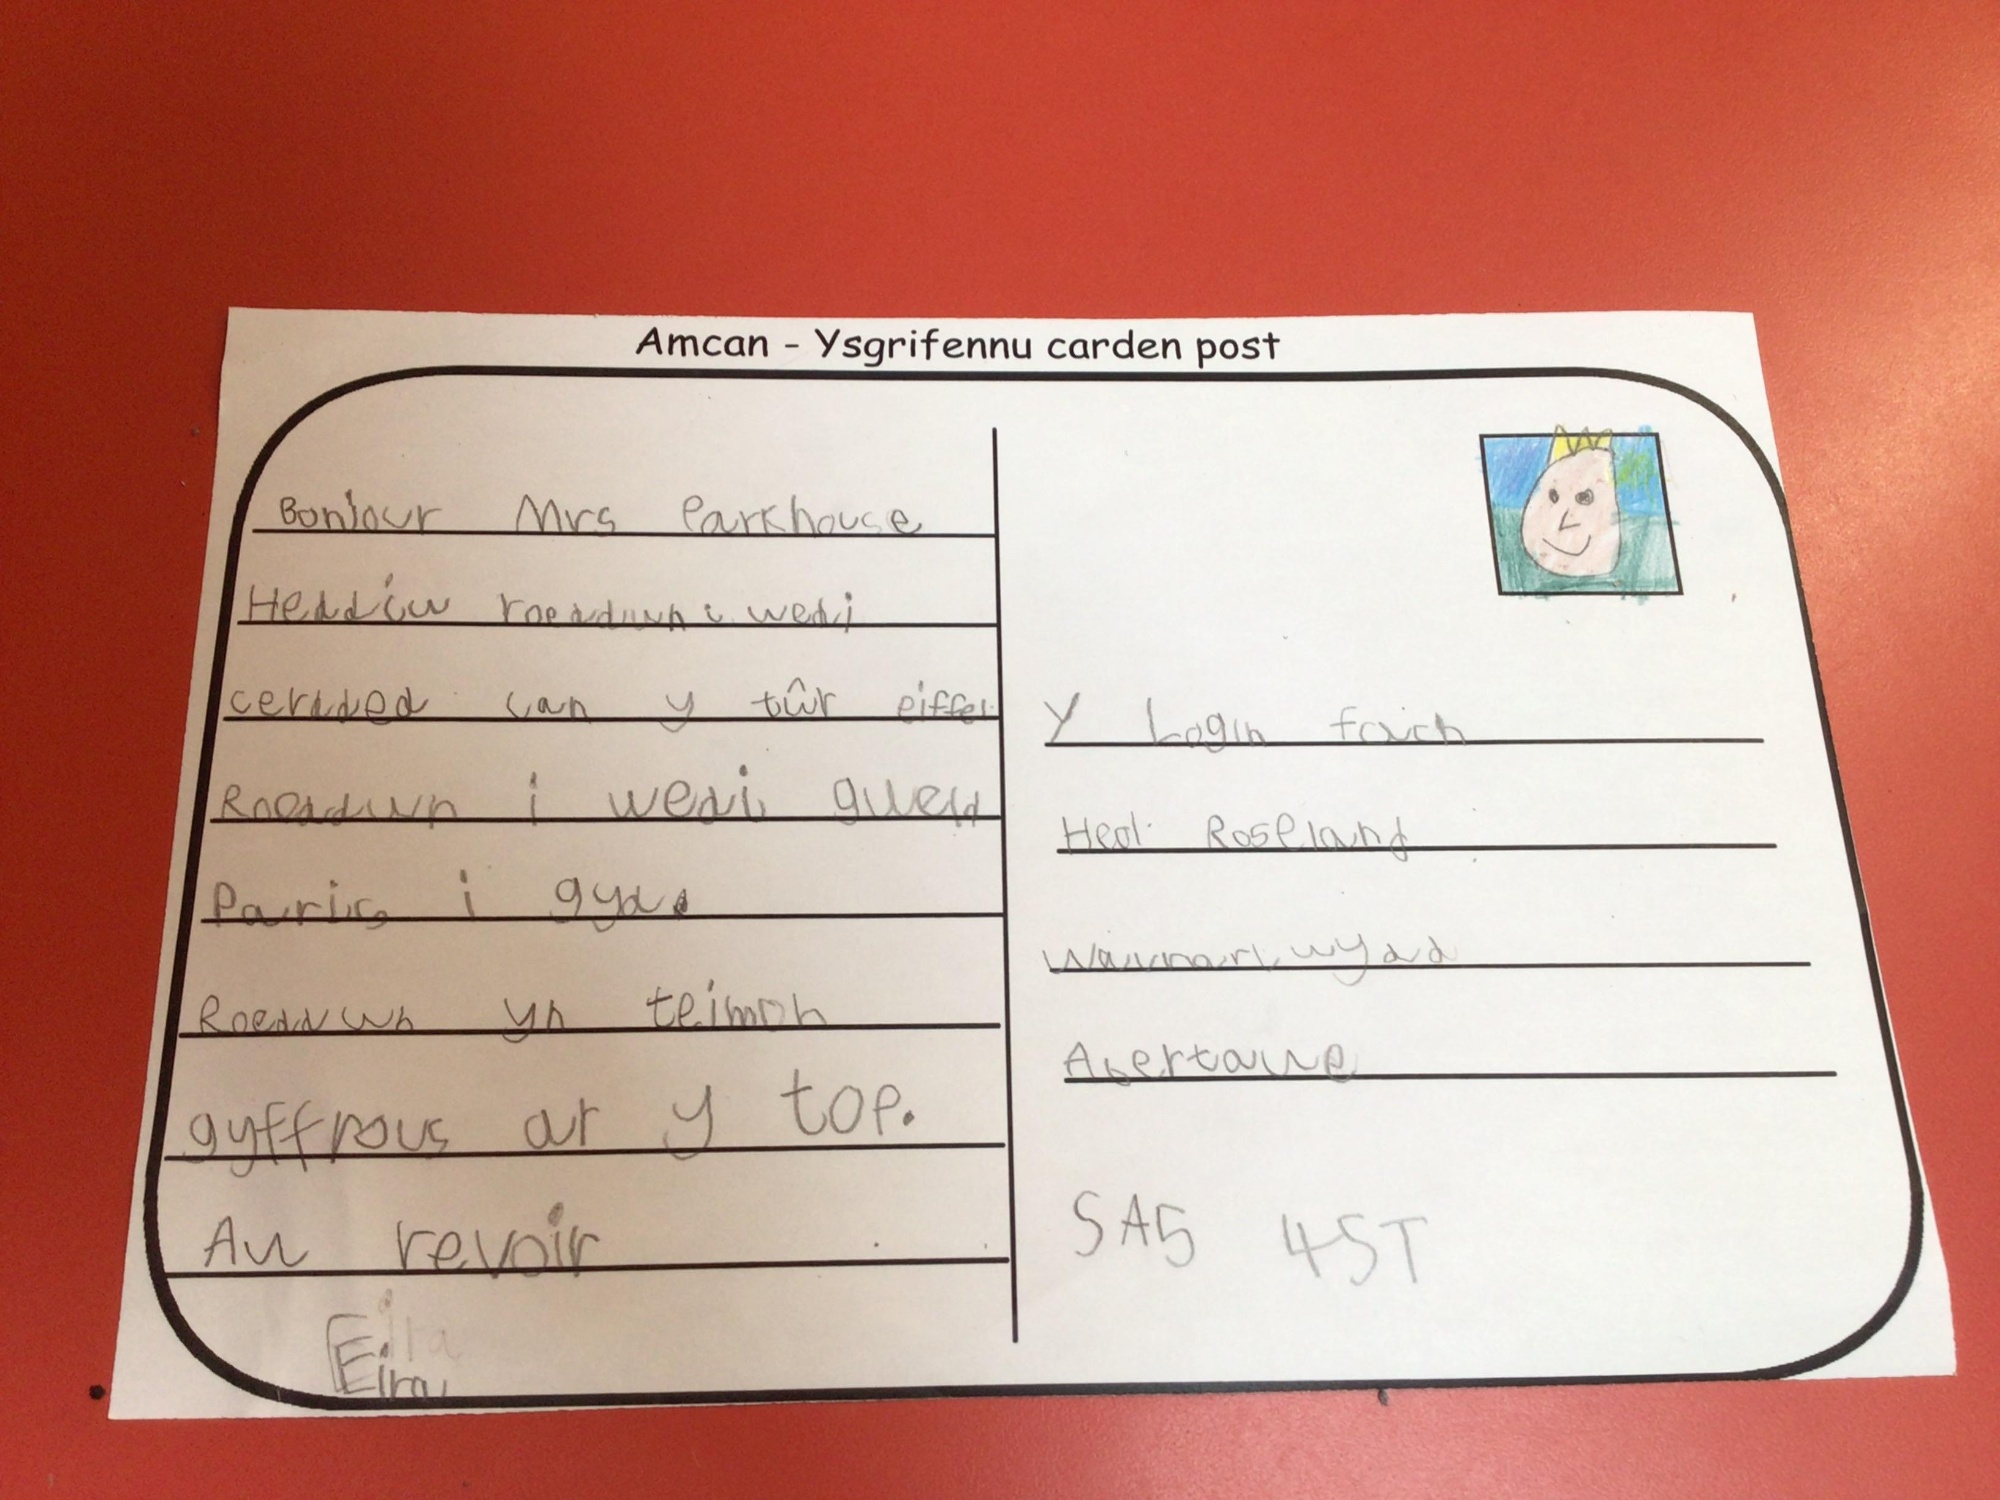 Amcan - Ysgrifennu carden post
Bonjour Mrs Parkhouse
Heddiw roeddwn i wedi
cerdded lan y tûr eiffel
Roeddwn i wedi gweld
Paris i gyd.
Roeddwn yn teimon
gyffrous ar y top.
Au revoir
Eira
Eira
Y Login fach
Heol Roseland
Waunarlwydd
Abertawe
SA5 4ST